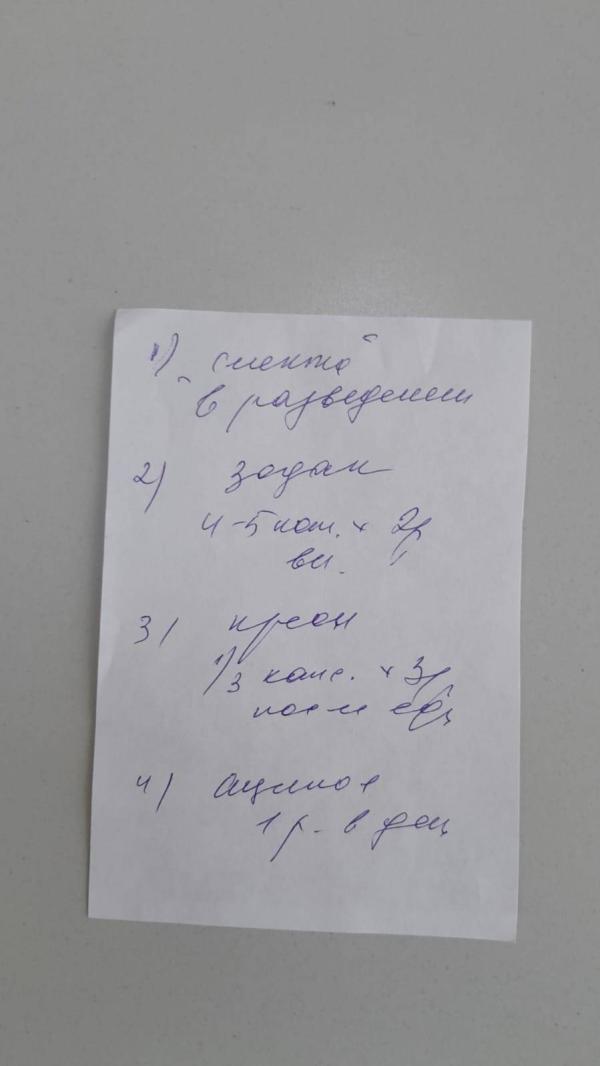 1) "Смекта"
в разведении
2) Зодак
4-5 кап. х 2р
вн.
3) Креон
1/3 капс. х 3р
после еды
4) Аципол
1 р. в день